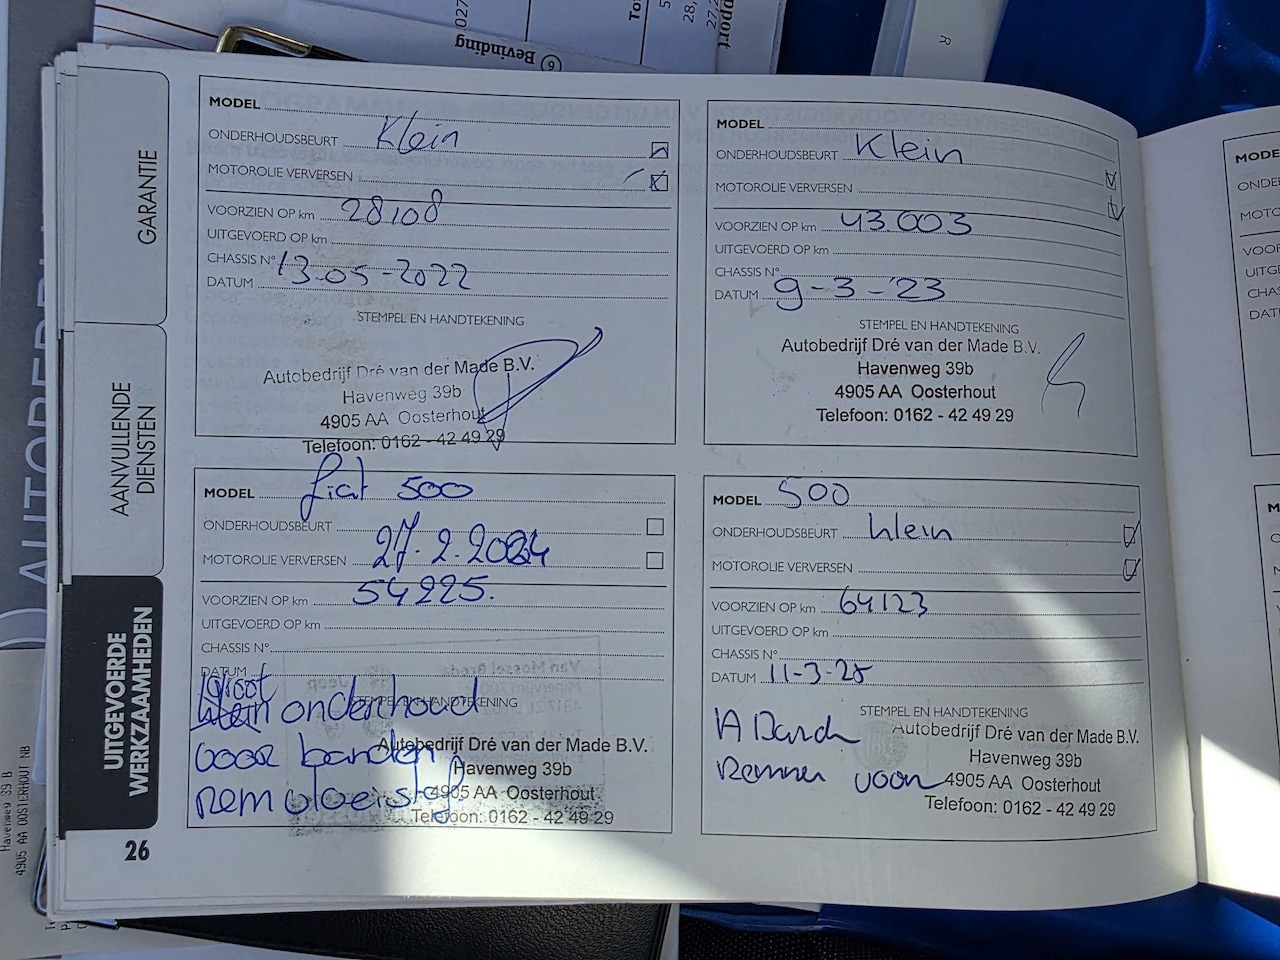 6 Bevinding
pport
R
GARANTIE
AANVULLENDE
DIENSTEN
UITGEVOERDE
WERKZAAMHEDEN
26
Havenweg 39 B
4905 AA OOSTERHOUT NB
MODEL
ONDERHOUDSBEURT Klein
MOTOROLIE VERVERSEN
VOORZIEN OP km 28108
UITGEVOERD OP km
CHASSIS N°
DATUM 13-05-2022
STEMPEL EN HANDTEKENING
Autobedrijf Dré van der Made B.V.
Havenweg 39b
4905 AA Oosterhout
Telefoon: 0162 - 42 49 29
MODEL
ONDERHOUDSBEURT Klein
MOTOROLIE VERVERSEN
VOORZIEN OP km 43.003
UITGEVOERD OP km
CHASSIS N°
DATUM 9-3-'23
STEMPEL EN HANDTEKENING
Autobedrijf Dré van der Made B.V.
Havenweg 39b
4905 AA Oosterhout
Telefoon: 0162 - 42 49 29
MODEL fiat 500
ONDERHOUDSBEURT
27.2.2024
MOTOROLIE VERVERSEN
54225.
VOORZIEN OP km
UITGEVOERD OP km
CHASSIS N°
DATUM
groot
klein onderhoud
STEMPEL EN HANDTEKENING
voor banden
remvloeistof
Autobedrijf Dré van der Made B.V.
Havenweg 39b
4905 AA Oosterhout
Telefoon: 0162 - 42 49 29
MODEL 500
ONDERHOUDSBEURT klein
MOTOROLIE VERVERSEN
VOORZIEN OP km 64123
UITGEVOERD OP km
CHASSIS N°
DATUM 11-3-25
STEMPEL EN HANDTEKENING
remmen voor
Autobedrijf Dré van der Made B.V.
Havenweg 39b
4905 AA Oosterhout
Telefoon: 0162 - 42 49 29